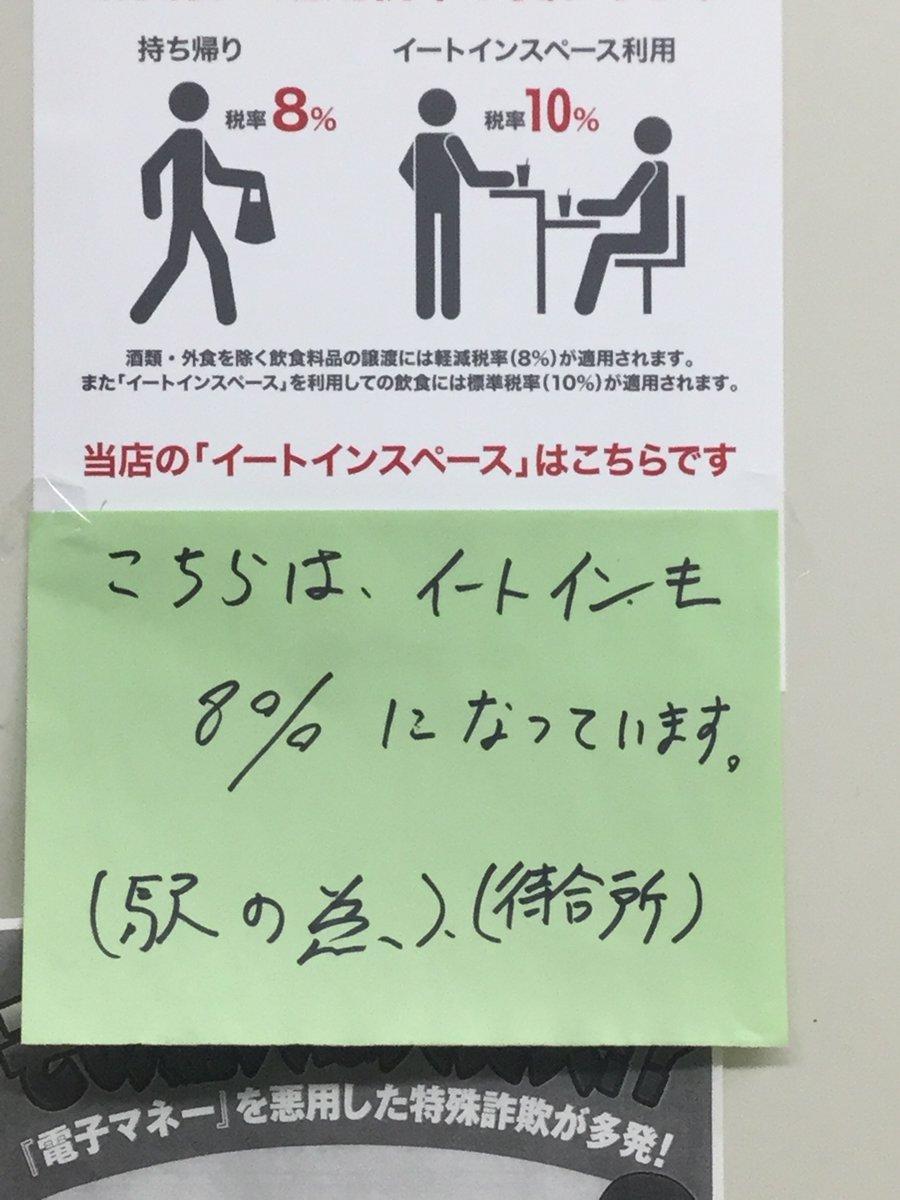 持ち帰り
イートインスペース利用
税率8%
税率10%
酒類・外食を除く飲食料品の譲渡には軽減税率(8%)が適用されます。
また「イートインスペース」を利用しての飲食には標準税率(10%)が適用されます。
当店の「イートインスペース」はこちらです
こちらは、イートインも
8%になっています。
(駅の為、)、(待合所)
『電子マネー』を悪用した特殊詐欺が多発!